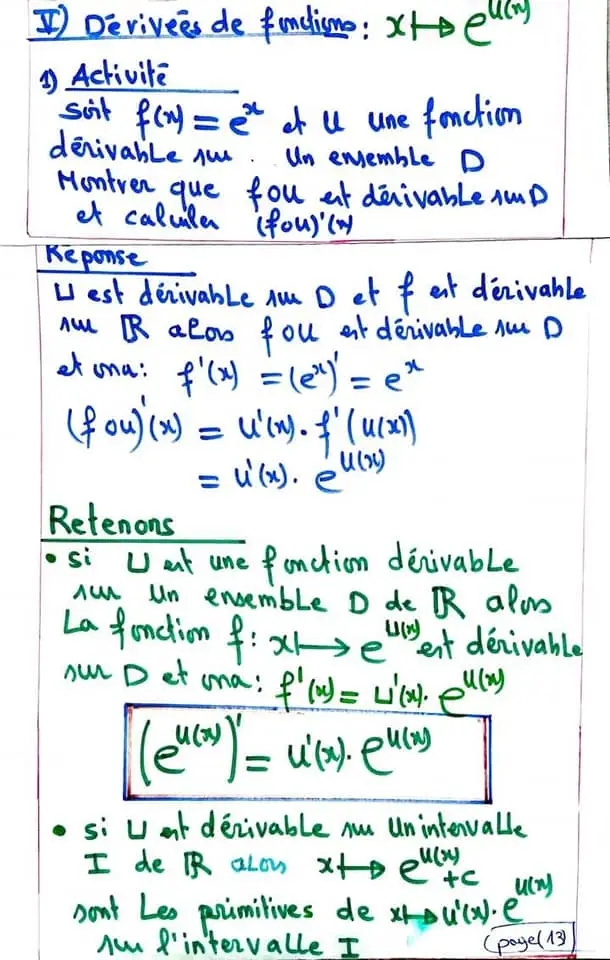 V) Dérivées de fonctions: x ↦ e^{U(x)}
1) Activité
Soit f(x) = e^x et U une fonction
dérivable sur. Un ensemble D
Montrer que foU est dérivable sur D
et calculer (foU)'(x)
Réponse
U est dérivable sur D et f est dérivable
sur ℝ alors foU est dérivable sur D
et ona: f'(x) = (e^x)' = e^x
(foU)'(x) = U'(x). f'(U(x))
= U'(x). e^{U(x)}
Retenons
• si U est une fonction dérivable
sur Un ensemble D de ℝ alors
La fonction f: x ↦ e^{U(x)} est dérivable
sur D et ona: f'(x) = U'(x). e^{U(x)}
(e^{U(x)})' = U'(x). e^{U(x)}
• si U est dérivable sur Un intervalle
I de ℝ alors x ↦ e^{U(x)} + c
sont Les primitives de x ↦ U'(x). e^{U(x)}
sur l'intervalle I
page(13)